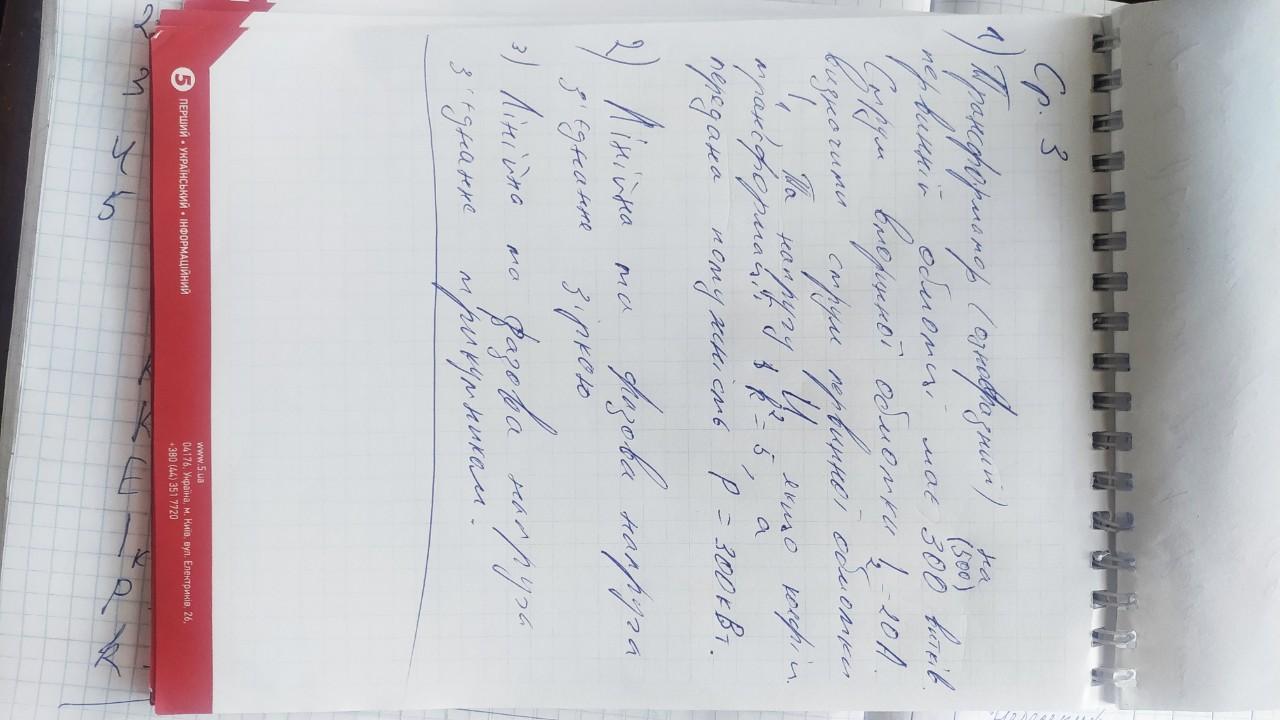 Ср. 3
1) Трансформатор (однофазний) на
(500)
первинній обмотці має 300 витків.
Струм вторинної обмотки i₂ = 20А.
визначити струм первинної обмотки
i₁ та напругу U, якщо коефіц.
трансформації k² = 5, а
передана потужність p = 300кВт.
2) Лінійна та фазова напруга
з'єднання зіркою
3) Лінійна та фазова напруга
з'єднання трикутником.
5 ПЕРШИЙ • УКРАЇНСЬКИЙ • ІНФОРМАЦІЙНИЙ
www.5.ua
04176, Україна, м. Київ, вул. Електриків, 26,
+380 (44) 351 7720
2
3
4
5
К
К
Е
І к
Р